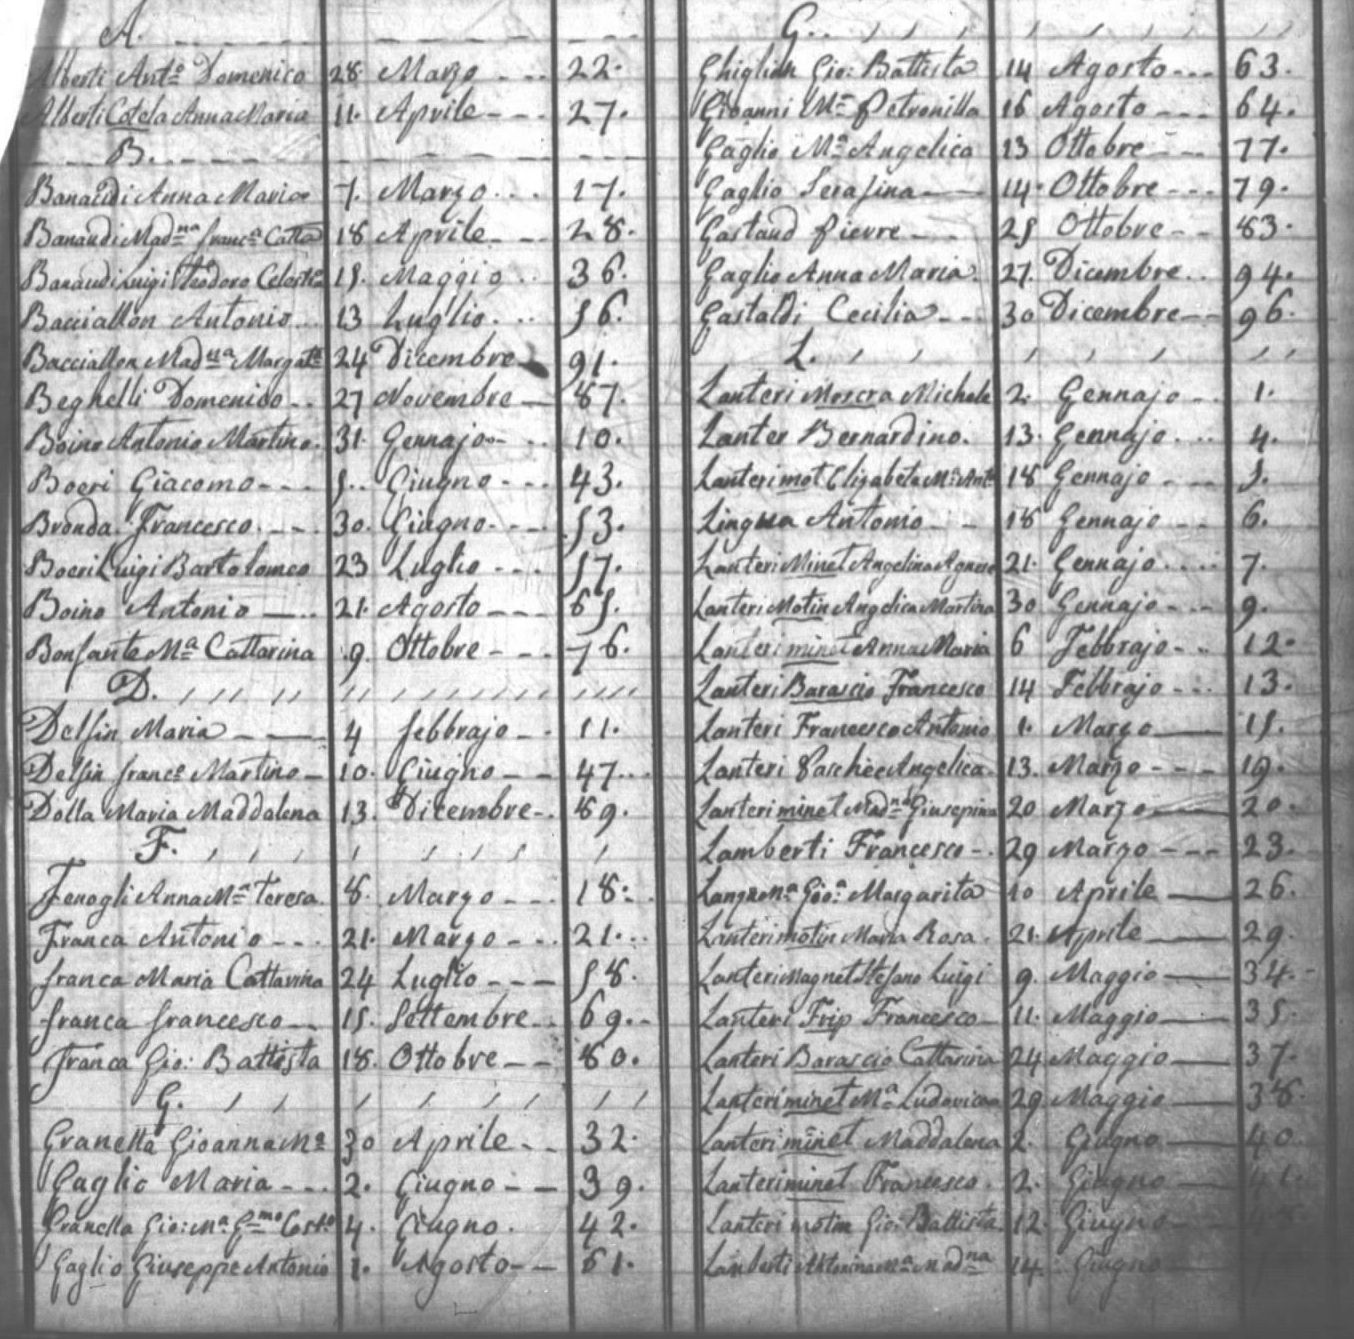 A.
Alberti Ant.o Domenico 28. Marzo 22.
Alberti Cotela Anna Maria 11. Aprile 27.
B.
Banaudi Anna Maria 7. Marzo 17.
Banaudi Mad.na franc.a Catta 18 Aprile 28.
Banaudi Luigi Teodoro Celest.o 15. Maggio 36.
Bacciallon Antonio 13 Luglio 56.
Bacciallon Mad.na Margat.a 24 Dicembre 91.
Beghelli Domenico 27 Novembre 87.
Boino Antonio Martino. 31. Gennajo 10.
Boeri Giacomo 5. Giugno 43.
Bronda Francesco. 30. Giugno 53.
Boeri Luigi Bartolomeo 23 Luglio 57.
Boino Antonio 21. Agosto 65.
Bonfante M.a Cattarina 9. Ottobre 76.
D.
Delfin Maria 4 febbrajo 11.
Delfin franc.o Martino 10. Giugno 47.
Dolla Maria Maddalena 13. Dicembre 89.
F.
Fenogli Anna M.a Teresa. 8. Marzo 18.
Franca Antonio 21. Marzo 21.
franca Maria Cattarina 24 Luglio 58.
franca francesco 15. Settembre 69.
Franca Gio: Battista 18. Ottobre 80.
G.
Granella Gioanna M.a 30 Aprile 32.
Gaglio Maria 2. Giugno 39.
Granella Gio: M.a G.mo Cost.o 4. Giugno. 42.
Gaglio Giuseppe Antonio 1. Agosto 61.
G.
Ghiglion Gio: Battista 14 Agosto 63.
Gioanni M.a Petronilla 16 Agosto 64.
Gaglio M.a Angelica 13 Ottobre 77.
Gaglio Serafina 14. Ottobre 79.
Gastaud Pierre 25 Ottobre 83.
Gaglio Anna Maria 27. Dicembre 94.
Gastaldi Cecilia 30 Dicembre 96.
L.
Lanteri Moscra Michele 2. Gennajo 1.
Lanter Bernardino. 13. Gennajo 4.
Lanteri mot Elizabeta M.a Ant.a 18 Gennajo 5.
Lingua Antonio 18 Gennajo 6.
Lanteri Minet Angelina Agnese 21. Gennajo 7.
Lanteri Motin Angelica Martina 30 Gennajo 9.
Lanteri minet Anna Maria 6 Febbrajo 12.
Lanteri Barascio Francesco 14 Febbrajo 13.
Lanteri Francesco Antonio 1. Marzo 15.
Lanteri Paschée Angelica. 13. Marzo 19.
Lanteri minet Mad.na Giusepina 20 Marzo 20.
Lamberti Francesco 29 Marzo 23.
Gio.a Margarita 10 Aprile 26.
Lanteri motin Maria Rosa. 21. Aprile 29.
Lanteri Magnet Stefano Luigi 9. Maggio 34.
Lanteri Frip Francesco 11. Maggio 35.
Lanteri Barascio Cattarina 24 Maggio 37.
Lanteri minet M.a Ludovica 29. Maggio 38.
Lanteri minet Maddalena 2. Giugno 40.
Lanteri minet Francesco. 2. Giugno 41.
Lanteri motin Gio: Battista 12. Giugno
Lamberti M.a Mad.na 14. Giugno